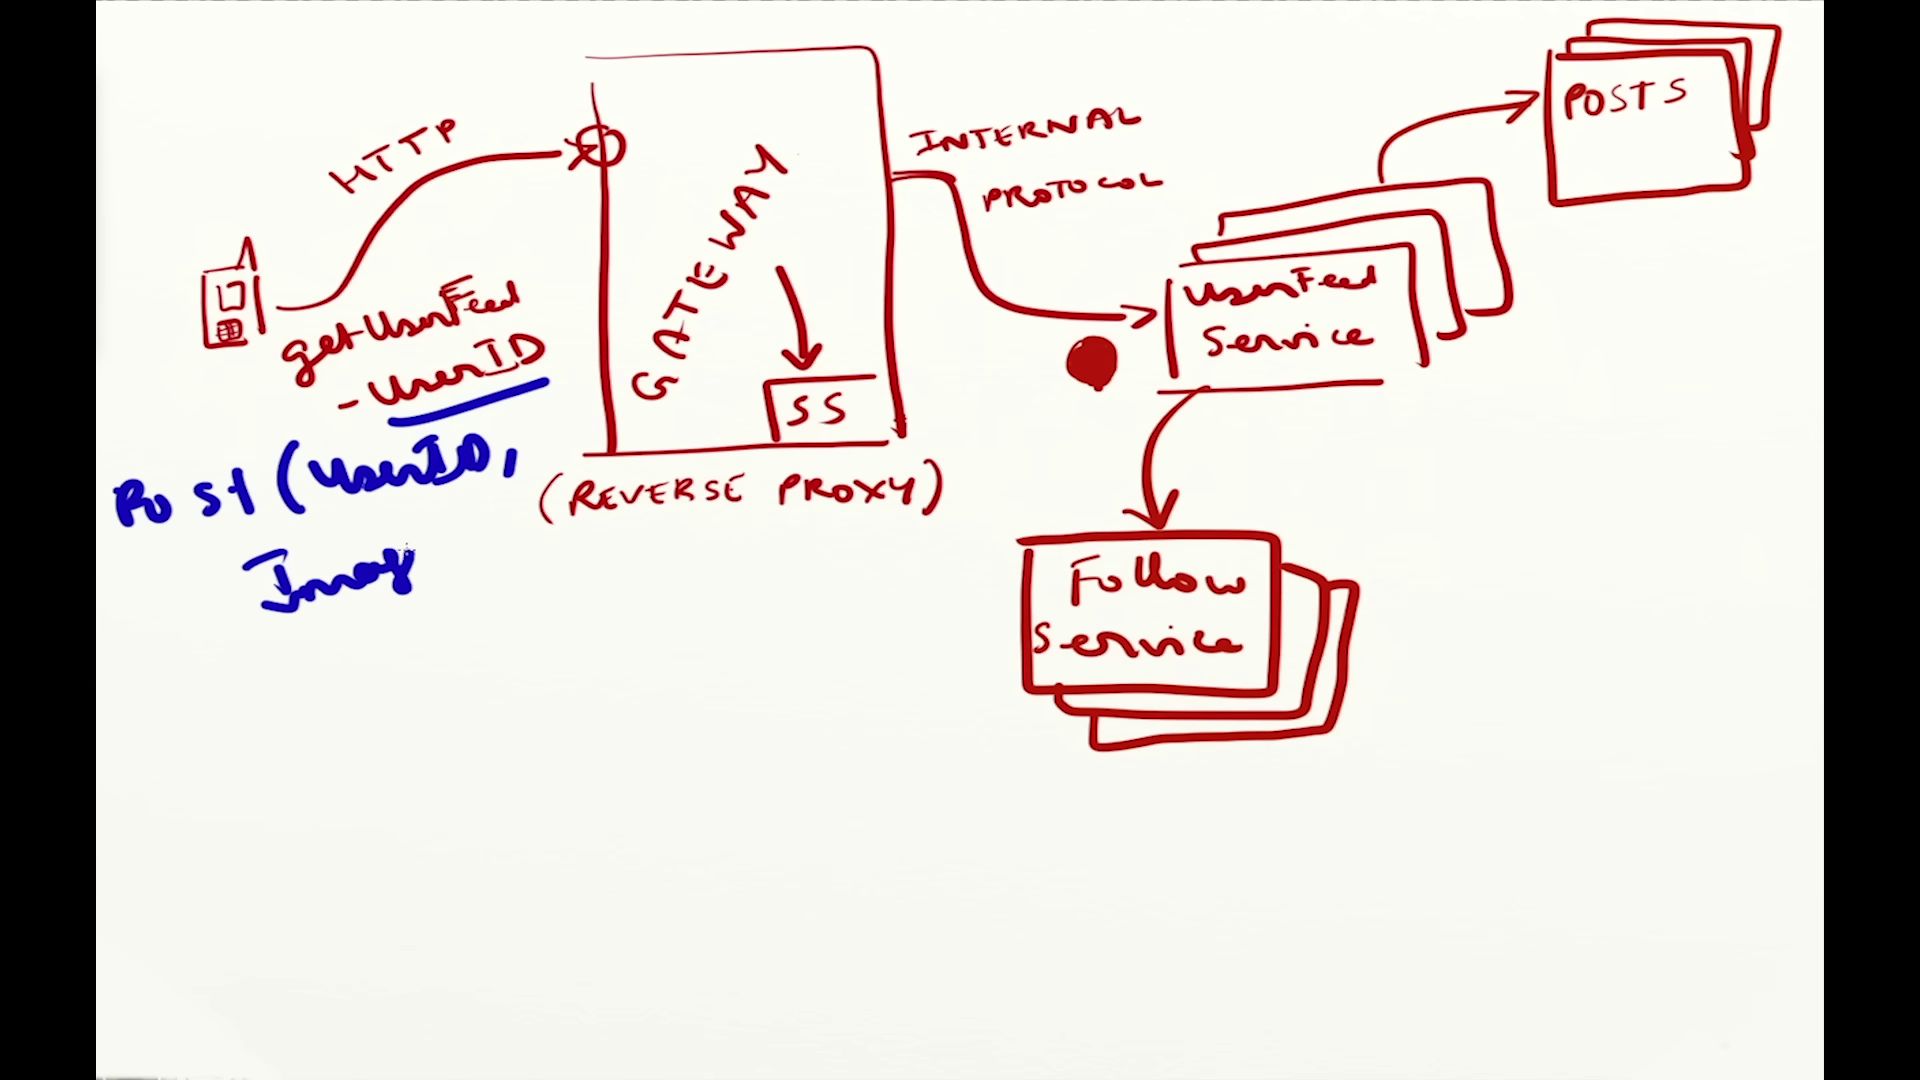 HTTP
getUserFeed
- UserID
Post (UserID,
Imag
GATEWAY
SS
(REVERSE PROXY)
INTERNAL
PROTOCOL
UserFeed
Service
POSTS
Follow
Service